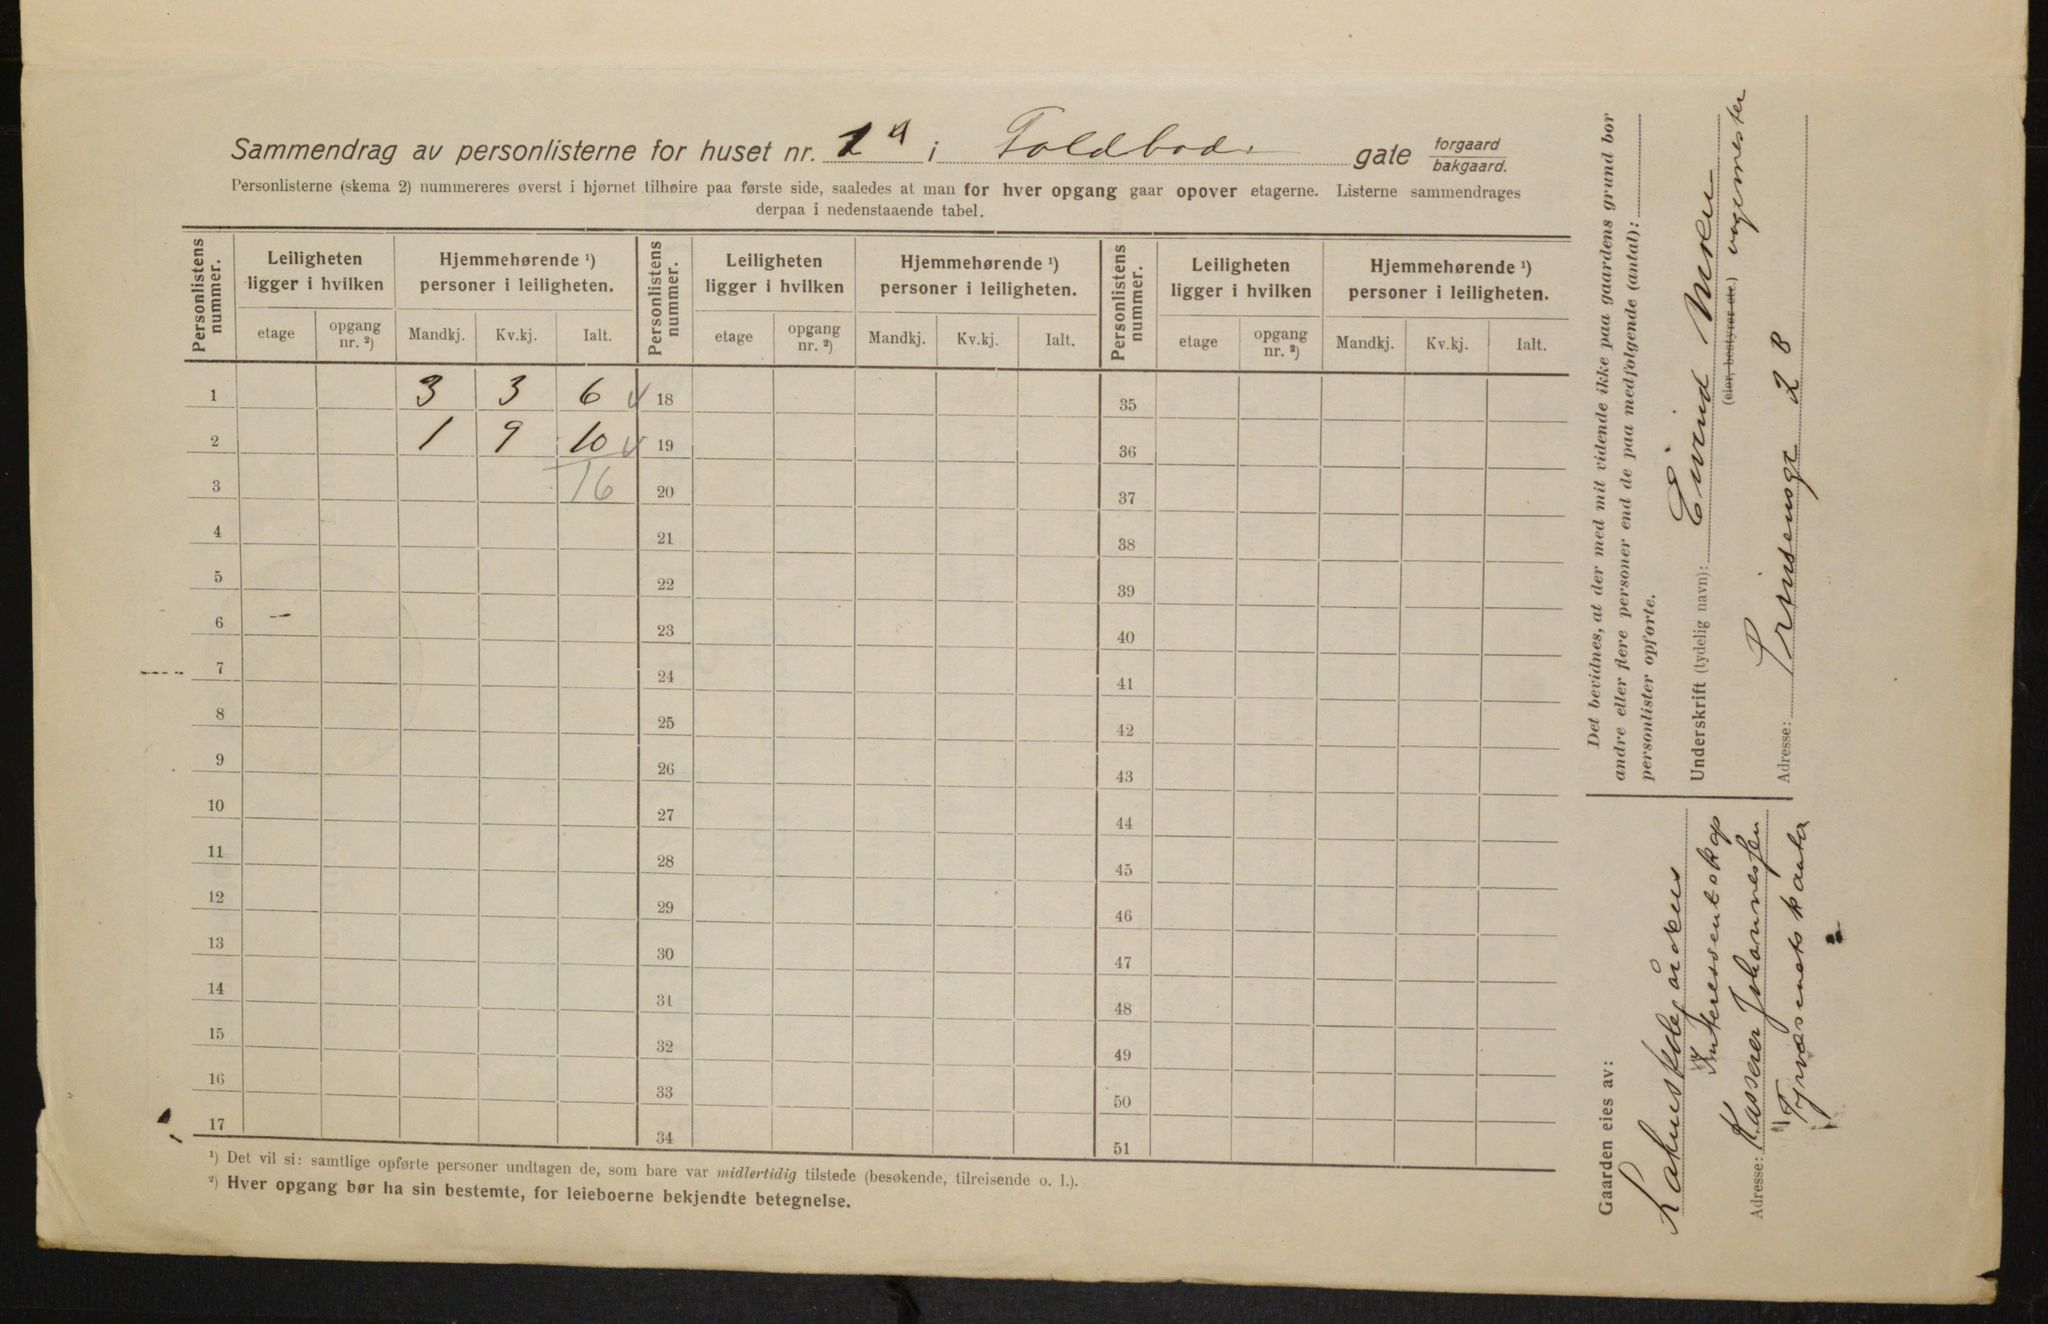 Sammendrag av personlisterne for huset nr. 1 a i Toldbod. gate forgaard bakgaard.
Personlisterne (skema 2) nummereres øverst i hjørnet tilhøire paa første side, saaledes at man for hver opgang gaar opover etagerne. Listerne sammendrages
derpaa i nedenstaaende tabel.
Personlistens nummer. Leiligheten ligger i hvilken Hjemmehørende ¹) personer i leiligheten. Personlistens nummer. Leiligheten ligger i hvilken Hjemmehørende ¹) personer i leiligheten. Personlistens nummer. Leiligheten ligger i hvilken Hjemmehørende ¹) personer i leiligheten.
etage opgang nr. ²) Mandkj. Kv.kj. Ialt. etage opgang nr. ²) Mandkj. Kv.kj. Ialt. etage opgang nr. ²) Mandkj. Kv.kj. Ialt.
1 3 3 6 18 35
2 1 9 10 19 36
3 16 20 37
4 21 38
5 22 39
6 23 40
7 24 41
8 25 42
9 26 43
10 27 44
11 28 45
12 29 46
13 30 47
14 31 48
15 32 49
16 33 50
17 34 51
¹) Det vil si: samtlige opførte personer undtagen de, som bare var midlertidig tilstede (besøkende, tilreisende o. l.).
²) Hver opgang bør ha sin bestemte, for leieboerne bekjendte betegnelse.
Det bevidnes, at der med mit vidende ikke paa gaardens grund bor
andre eller flere personer end de paa medfølgende (antal):
personlister opførte.
Underskrift (tydelig navn): Eivind
(eier, bestyrer etc.) vagemester
Adresse: Prinsensgt 28
Gaarden eies av:
Interessentskap
Adresse: Kasserer Johannessen